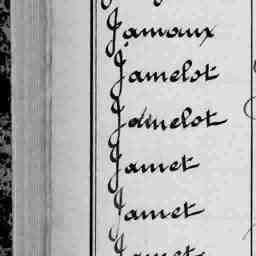 Jamaux
Jamelot
Jamelot
Jamet
Jamet
Jamet